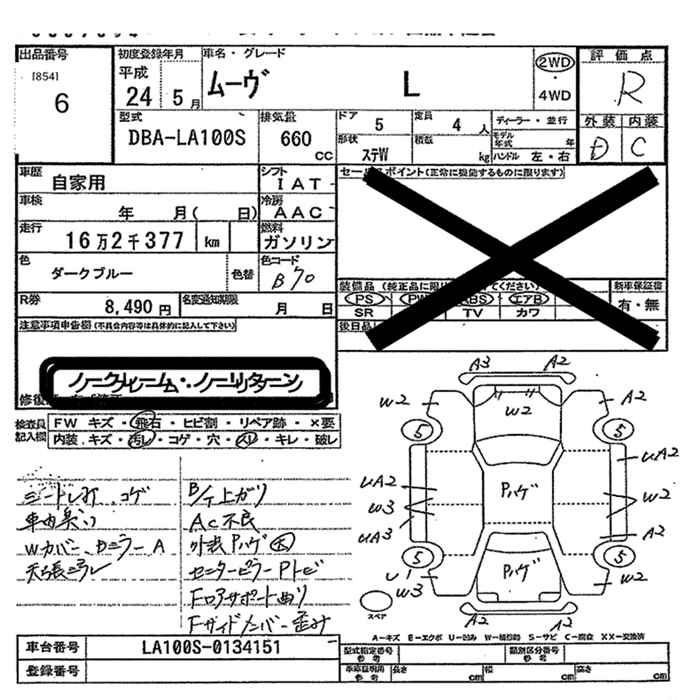 出品番号
[854]
6
初度登録年月
平成
24 5 月
車名・グレード
ムーヴ L
2WD
・
4WD
評価点
R
外装 内装
D C
型式
DBA-LA100S
排気量
660
CC
ドア 5
定員 4 人
形状
ステW
積載
kg
ディーラー・並行
モデル年式 年
ハンドル 左・右
車歴
自家用
シフト
IAT
セールスポイント(正常に機能するものに限ります)
車検
年 月( 日)
冷房
AAC
走行
16万2千377 km
燃料
ガソリン
色
ダークブルー
色替
色コード
B70
装備品 (純正品に限り
てください)
新車保証書
有・無
PS PW ABS エアB
SR TV カワ
R券
8,490 円
名変通知期限
月 日
後日品
注意事項申告欄(不具合内容等は具体的に記入して下さい)
ノークレーム・ノーリターン
修復
検査員記入欄
FW キズ・飛石・ヒビ割・リペア跡・×要
内装 キズ・汚レ・コゲ・穴・スリ・キレ・破レ
コゲ
車内臭い
Wカバー、Bミラー A
下上ガリ
AC不良
外装Pハゲ 大
センターピラー Pトビ
Fロアサポート曲り
Fサイドメンバー歪み
A3 A2
W2 W2 A2
5 5
UA2 UA2
Pハゲ
W3 W2
UA3 A2
5 5
U1 Pハゲ W2
W3
スペア
A2 A2
A-キズ E-エクボ U-凹み W-補修跡 S-サビ C-腐食 XX-交換済
車台番号 LA100S-0134151
登録番号
型式指定番号 参考
類別区分番号 参考
車庫証明用 参考
長さ cm 幅 cm 高さ cm